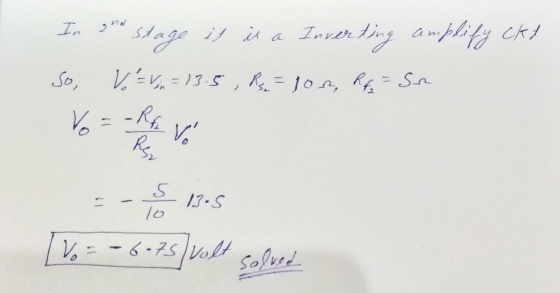 In 2nd stage it is a Inverting amplify ckt
So, Vo' = Vin = 13.5, Rs2 = 10 Ω, Rf2 = 5Ω
Vo = -Rf2/Rs2 Vo'
= - 5/10 13.5
Vo = -6.75 Volt solved